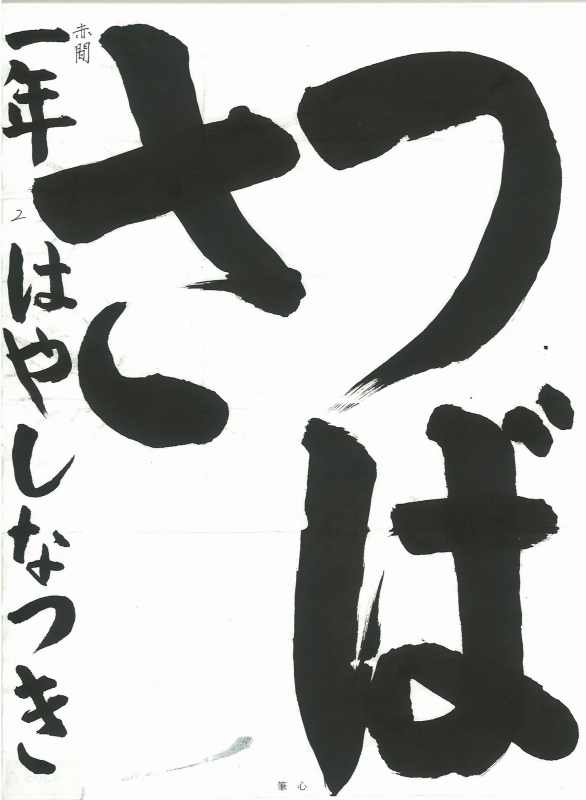 つば
さ
赤間
一年 2 はやしなつき
筆心